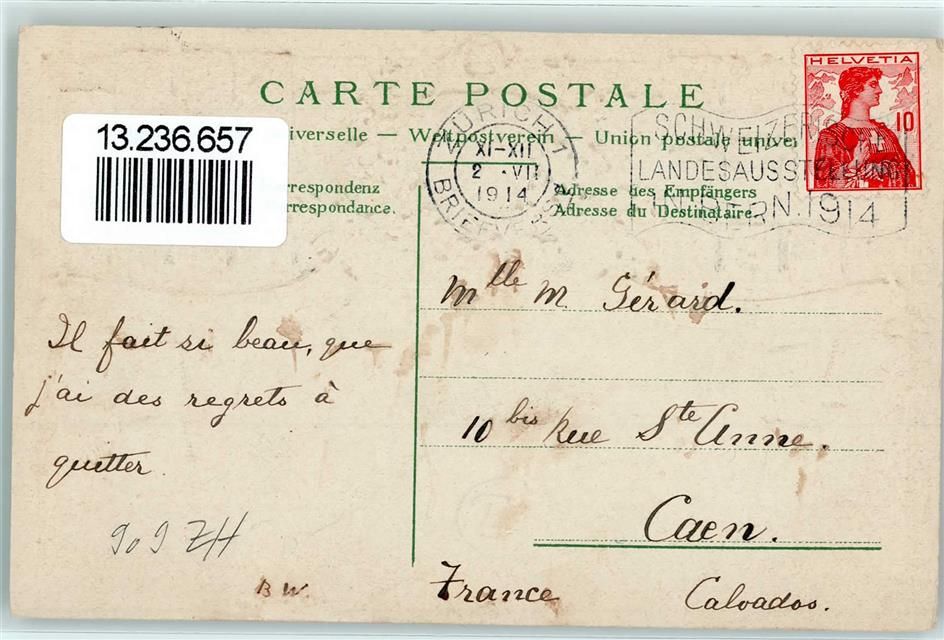 CARTE POSTALE
iverselle — Weltpostverein — Union postale univer
13.236.657
HELVETIA
10
ZÜRICH 1
XI-XII
2 . VII
1914
BRIEFVERS
SCHWEIZERISCHE
LANDESAUSSTELLUNG
IN BERN. 1914
rrespondenz
rrespondance.
Adresse des Empfängers
Adresse du Destinataire
Il fait si beau, que
j'ai des regrets à
quitter.
909 ZH
B W.
Mlle M. Gérard.
10 bis Rue Ste Anne.
Caen.
France Calvados.